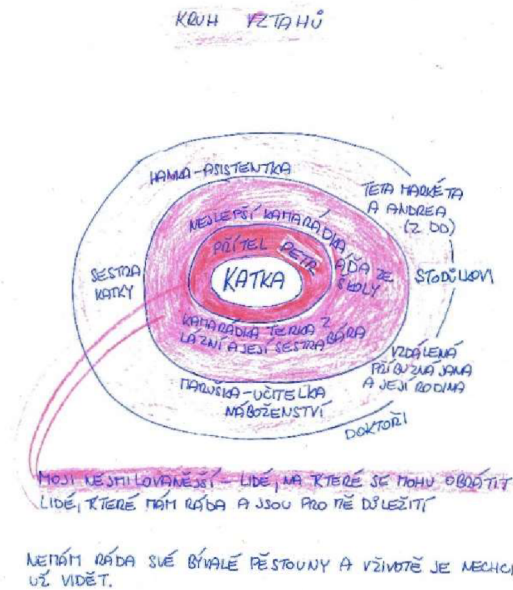 KRUH VZTAHŮ
HANKA-ASISTENTKA
TETA MARKÉTA
A ANDREA
(Z DD)
NEJLEPŠÍ KAMARÁDKA
AĎA ZE
ŠKOLY
PŘÍTEL PETR
SESTRA
KATKY
KATKA
STODŮLKOVI
KAMARÁDKA TERKA Z
LÁZNÍ A JEJÍ SESTRA BÁRA
VZDÁLENÁ
PŘÍBUZNÁ JANA
A JEJÍ RODINA
MARUŠKA-UČITELKA
NÁBOŽENSTVÍ
DOKTOŘI
MOJI NEJMILOVANĚJŠÍ - LIDÉ, NA KTERÉ SE MOHU OBRÁTIT
LIDÉ, KTERÉ MÁM RÁDA A JSOU PRO MĚ DŮLEŽITÍ
NEMÁM RÁDA SVÉ BÝVALÉ PĚSTOUNY A V ŽIVOTĚ JE NECHCI
UŽ VIDĚT.